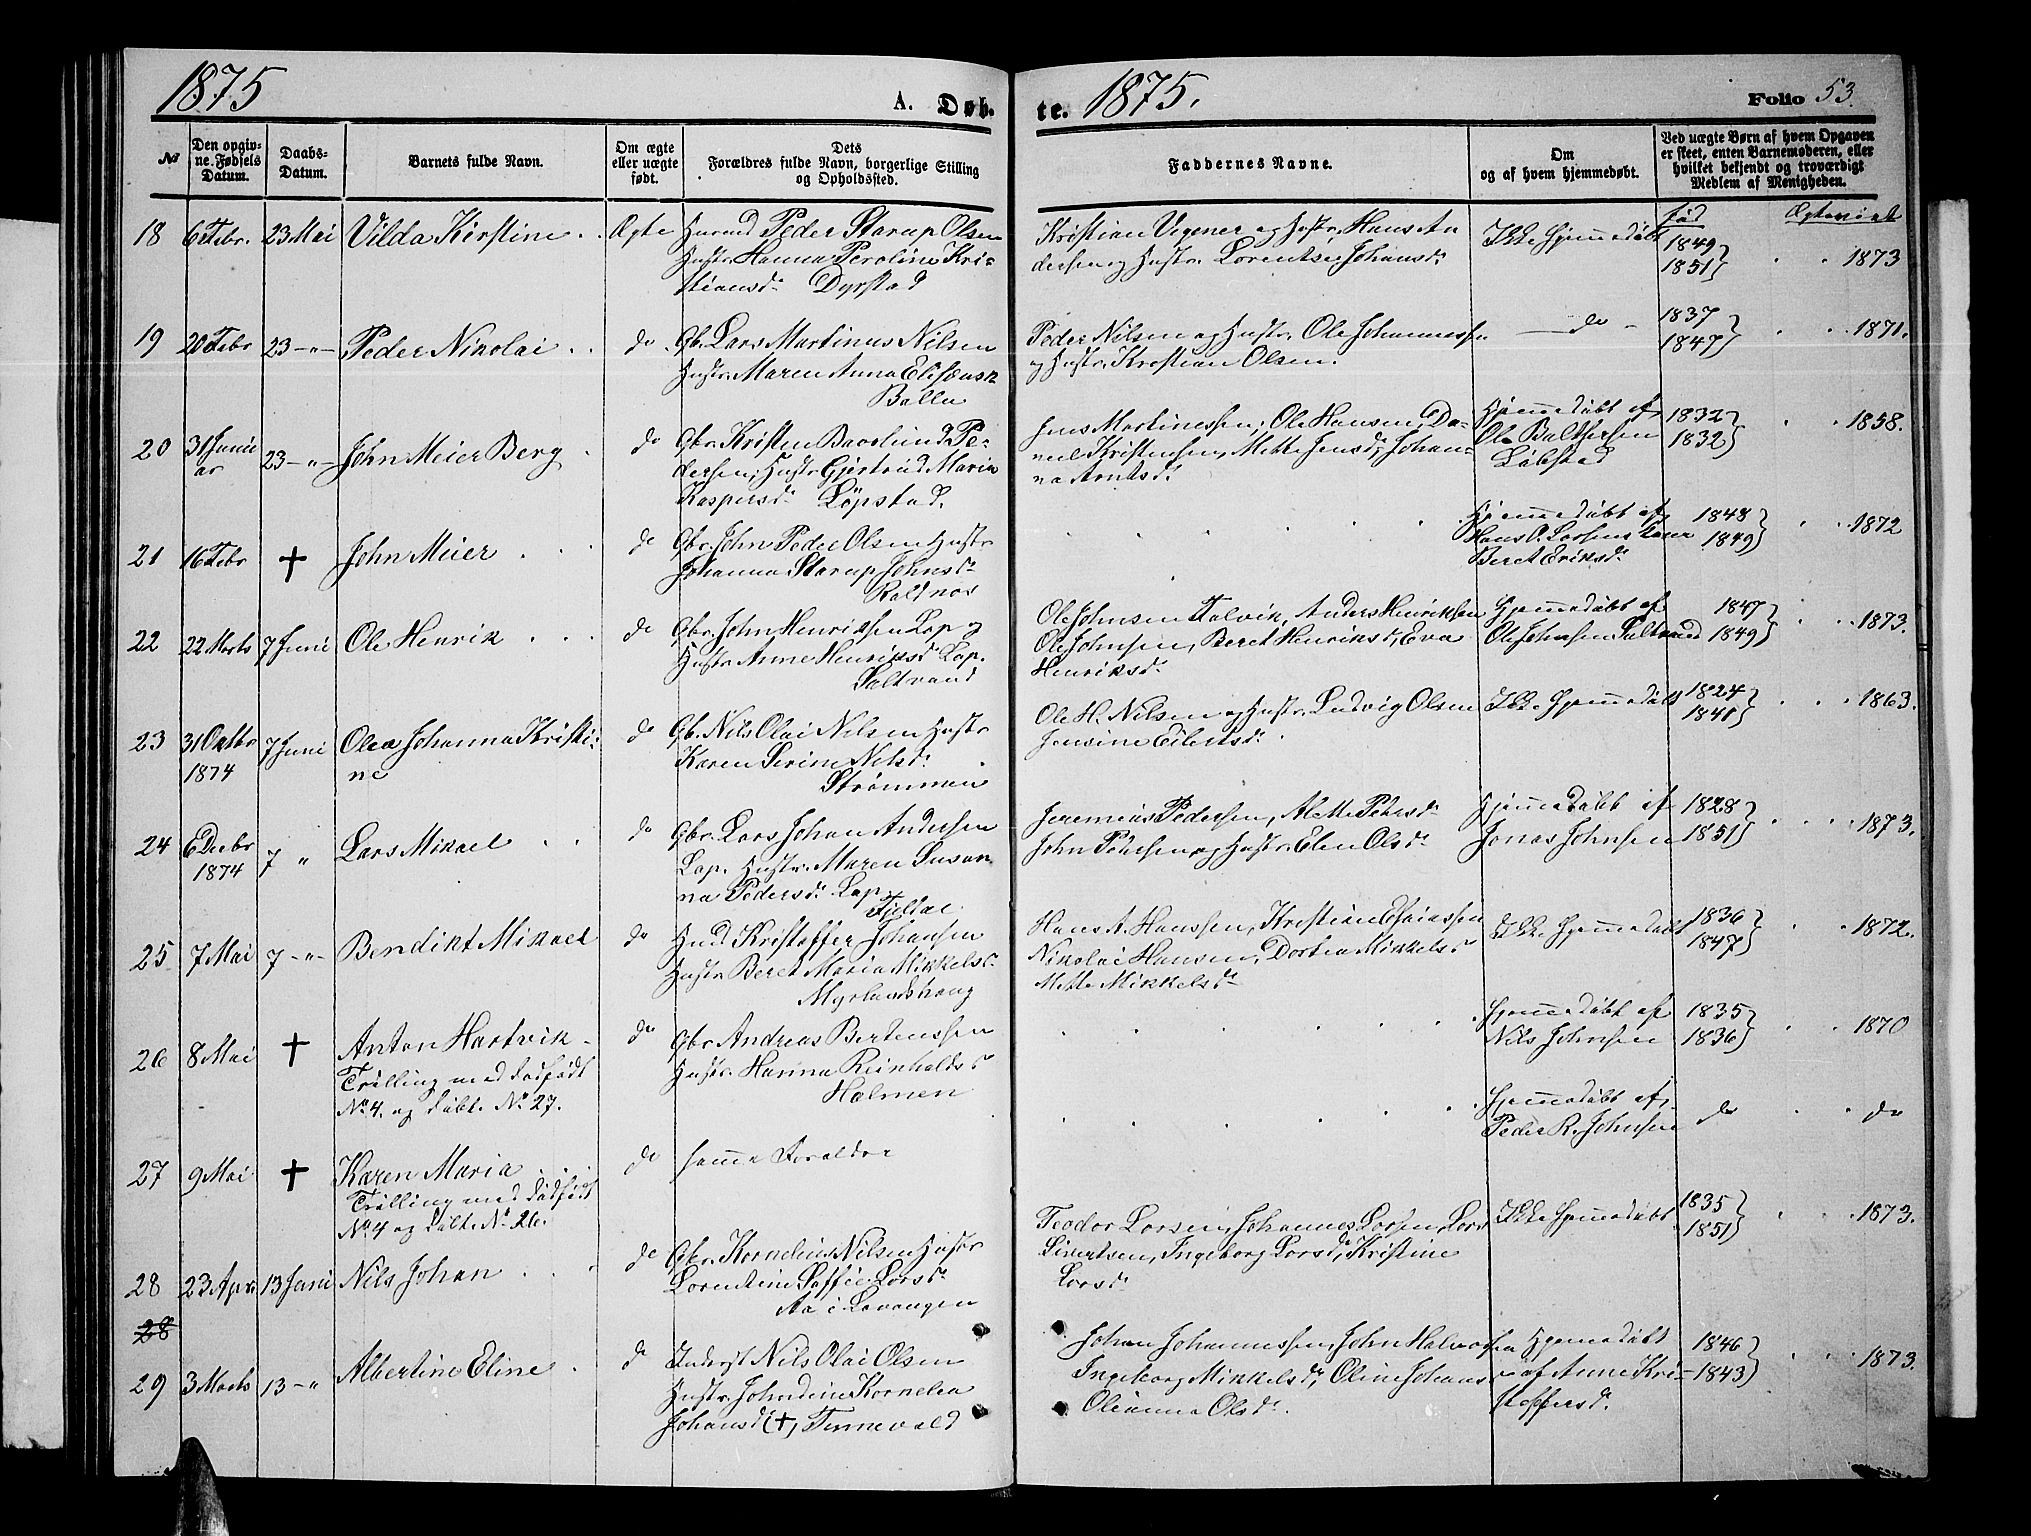 1875
A. Døb-
te. 1875.
Folio 53.
№
Den opgiv-
ne Fødsels
Datum.
Daabs-
Datum.
Barnets fulde Navn.
Om ægte
eller uægte
født.
Dets
Forældres fulde Navn, borgerlige Stilling
og Opholdssted.
Faddernes Navne.
Om
og af hvem hjemmedøbt.
Ved uægte Børn af hvem Opgaven
er skeet, enten Barnemoderen, eller
hvilket bekjendt og troværdigt
Medlem af Menigheden.
fød
18 6 Febr. 23 Mai Vilda Kirstine Ægte Peder Starup Olsen
Hustr. Hanna Peroline Kri-
stiansd. Dyrstad
Kristian Vigener og Hustr, Hans An
dersen og Hustr. Lorentse Johansd.
Ikke Hjemmedøbt
1849
1851 1873
19 20 Febr 23 -"- Peder Nikolai do Gbr. Lars Martinus Nilsen
Hustr. Maren Anna
Balla
Peder Nilsen og Hustr. Ole Johannessen
og Hustr. Kristian Olsen.
do
1837
1847 1871.
20 31 Janu
ar 23 -"- John Meier Berg do Gbr. Kristen Pe-
dersen, Hustr Gjertrud Maria
Kaspersd. Løpstad.
Jens Martinessen, Ole Hansen, Da-
niel Kristensen, Mette Jensd, Johan-
na Arntsd.
Hjemmedøbt af
Ole Baltsersen
Løbstad
1832
1832 1858.
21 16 Febr † John Meier do Gbr. John Peder Olsen Hustr
Johanna Starup Johnsd.
Hjemmedøbt af
Beret Eriksd.
1848
1849 1872
22 22 Marts 7 Juni Ole Henrik do Gbr. John Henriksen Lap og
Hustr Anne Henriksd. Lap.
Saltvand
Ole Johnsen Anders Henriksen
Ole Johnsen, Beret Henriksd, Eva
Henriksd.
Hjemmedøbt af
Ole Johnsen Saltvand
1847
1849 1873.
23 31 Oktbr
1874 7 Juni Olea Johanna Kristi-
ne do Gb. Nils Olai Nilsen Hustr
Karen Serine Nilsd.
Strømmen
Ole H. Nilsen og Hustr. Ludvig Olsen
Jensine Eilertsd.
Ikke Hjemmedøbt
1824
1863.
24 6 Decbr
1874 7 " Lars Mikael do Gbr. Lars Johan Andersen
Lap. Hustr. Maren Susan
na Pedersd. Lap
Jeremias Pedersen, Alette Petersd.
John Petersen og Hustr. Elen Olsd.
Hjemmedøbt af
Jonas Johnsen
1828
1851 1873.
25 7 Mai 7 -"- Bendikt Mikael do Kristoffer Johansen
Hustr Beret Maria Mikkelsd.
Myrlandshaug
Hans A. Hanssen, Kristian Esaiassen
Nikolai Hansen, Dortea Mikkelsd
Mette Mikkelsd.
Ikke Hjemmedøbt
1836
1847 1872.
26 8 Mai † Anton Hartvik -
Trilling med dødfødt
No 4. og døbt No 27.
do Gbr Andreas Berteussen
Hustr. Hanna Reinholdsd
Holmen
Hjemmedøbt af
Nils Johnsen
1835
1836 1870
27 9 Mai † Karen Maria
Trilling med dødfødt
No 4 og døbt No 26.
do samme Forældre
Hjemmedøbt af
Peder R. Johnsen
do do
28 23 Apr 13 Juni Nils Johan do Gbr. Kornelius Nilsen Hustr
Lorentine Soffie Larsd.
Aa i Lavangen
Teodor Larsen, Johannes Larsen, Lars
Sivertsen, Ingeborg Larsd, Kristine
Larsd.
Ikke Hjemmedøbt
1835
1851 1873.
28
29 3 Marts 13 -" Albertine Eline do Inderst Nils Olai Olsen
Hustr. Kornelia
Johansd (†), Tennevold
Johan Johannessen, John Halvorsen
Ingeborg Mikkelsd, Oline Johansd
Oleanna Olsd.
Hjemmedøbt
af Anne Kri-
stoffersd.
1846
1843 1873.